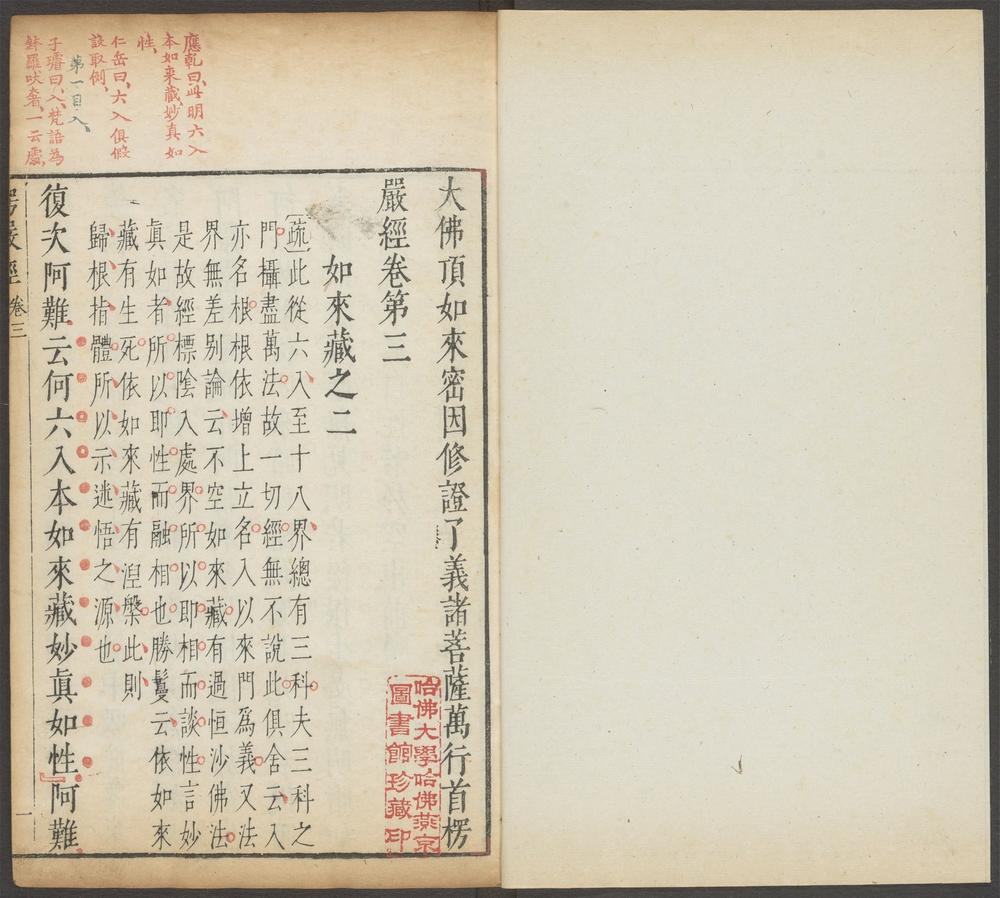 應乾曰此明六入
本如來藏妙真如
性
仁岳曰六入俱假
設取倒
第一目入
子璿曰入梵語為
鉢羅吠奢一云處
大佛頂如來密因修證了義諸菩薩萬行首楞
嚴經卷第三
如來藏之二
疏此從六入至十八界總有三科夫三科之
門攝盡萬法故一切經無不說此俱舍云入
亦名根根依增上立名入以來門爲義又法
界無差别論云不空如來藏有過恒沙佛法
是故經標陰入處界所以即相而談性言妙
眞如者所以即性而融相也勝鬘云依如來
藏有生死依如來藏有湼槃此則
歸根指體所以示迷悟之源也
復次阿難云何六入本如來藏妙眞如性阿難
嚴經 卷三
一
哈佛大學哈佛燕京
圖書館珍藏印